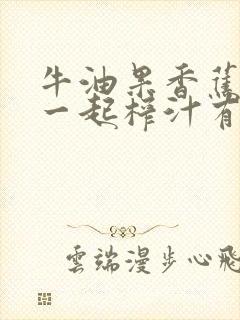 牛油果香蕉
一起榨汁有
雲端漫步心飛